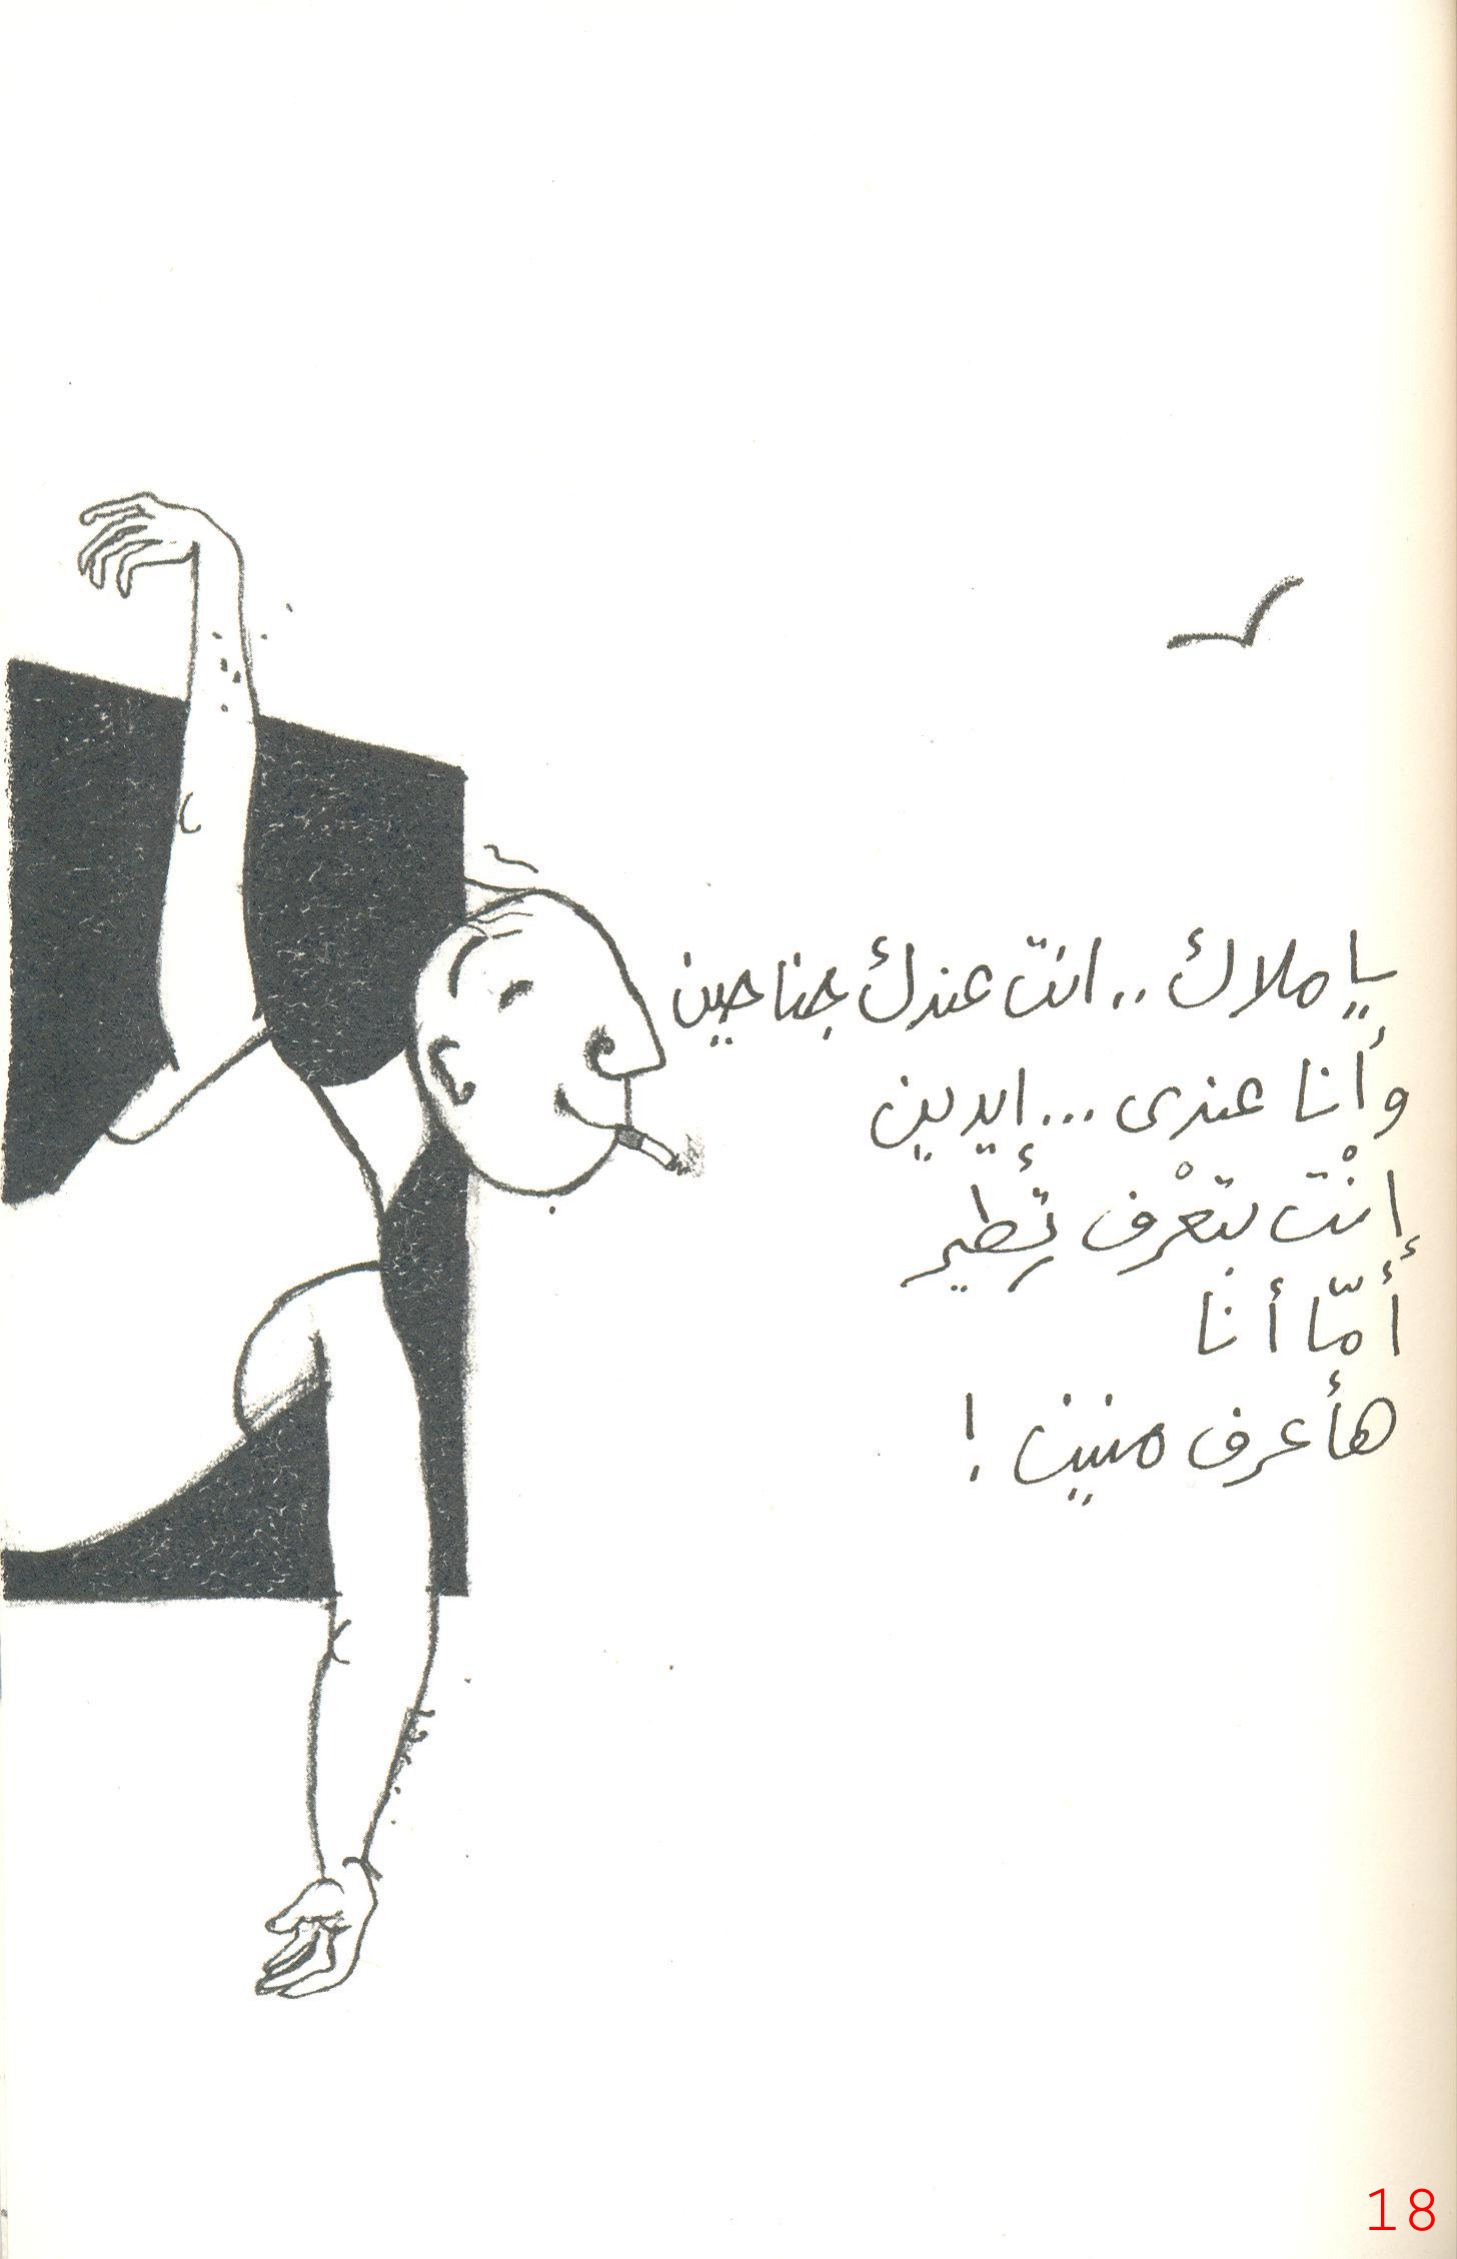 يا ملاك.. انت عندك جناحين
وأنا عندى... إيدين
إنْت بتعْرف تِطير
أمّا أنا
هأعرف منين !
18